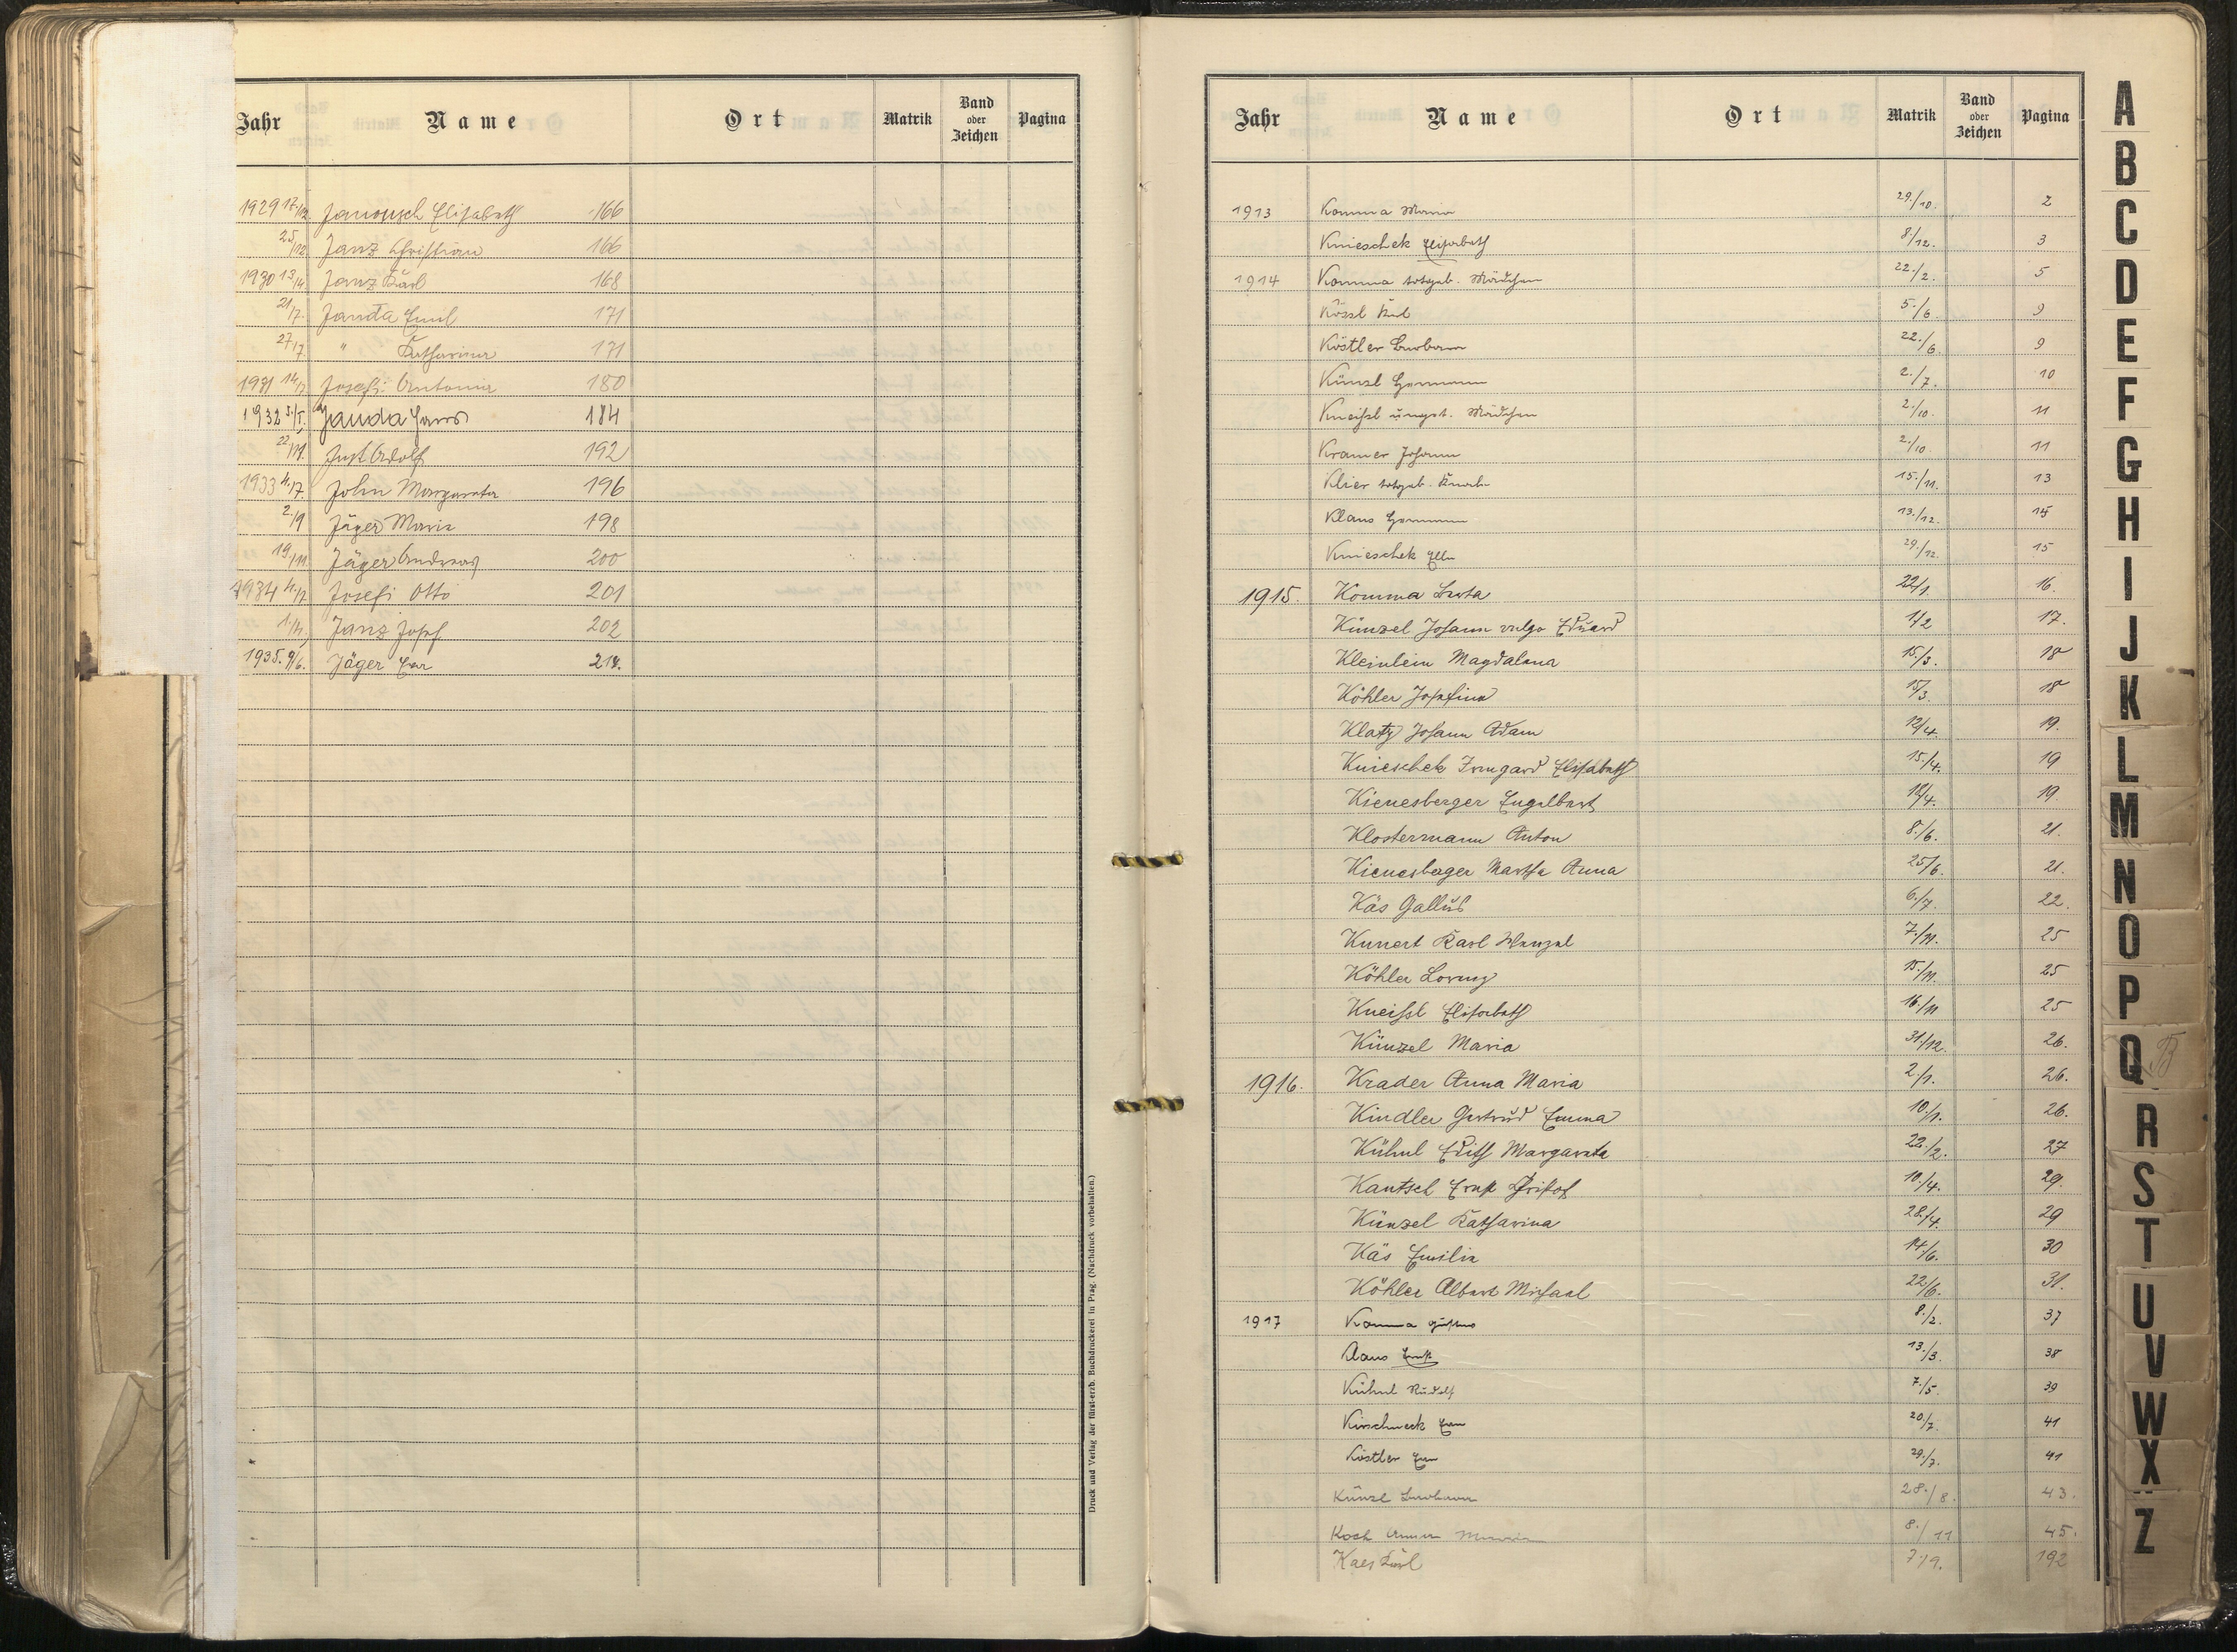 Jahr Name Ort Matrik Band oder Zeichen Pagina
1929 17./12. Janousch Elisabeth 166
25/12 Janz Christian 166
1930 13/4 Janz Karl 168
21/7. Janda Emil 171
27/7 " Katharina 171
1931 14/7 Josefi Antonia 180
1932 5./I. Janda Hans 184
22/11. Just Adolf 192
1933 4./7. John Margareta 196
2./9 Jäger Maria 198
19./11. Jäger Andreas 200
1934 4./7 Josefi Otto 201
1./4. Janz Josef 202
1935. 9/6. Jäger Eva 214.
Druck und Verlag der fürst-erzb. Buchdruckerei in Prag. (Nachdruck vorbehalten.)
Jahr Name Ort Matrik Band oder Zeichen Pagina
1913 Komma Maria 29./10. 2
Knieschek Elisabeth 8/12. 3
1914 Komma totgeb. Mädchen 22./2. 5
Kössl Karl 5./6 9
Köstler Barbara 22./6. 9
Künzl Hermann 2./7. 10
Kneißl ungt. Mädchen 2./10. 11
Kramer Johann 2./10. 11
Klier totgeb. Knabe 15./11. 13
Klaus Hermann 13./12. 15
Knieschek Ella 29./12. 15
1915. Komma Berta 22/1. 16.
Künzel Johann vulgo Eduard 1/2 17.
Kleinlein Magdalena 15./3. 18
Köhler Josefina 15/3. 18
Klatz Johann Adam 12/4. 19.
Knieschek Irmgard Elisabeth 15./4. 19
Kienesberger Engelbert 18/4. 19.
Klostermann Anton 8./6. 21.
Kienesberger Martha Anna 25/6. 21.
Käs Gallus 6./7. 22.
Kunert Karl Wenzel 7./11. 25
Köhler Lorenz 15./11. 25
Kneißl Elisabeth 16./11 25
Künzel Maria 31./12. 26.
1916. Krader Anna Maria 2./1. 26.
Kindler Gertrud Emma 10./1. 26.
Kühnl Edith Margareta 22./2. 27
Kautsch Ernst 10./4. 29.
Künzel Katharina 28./4. 29
Käs Emilia 14/6. 30
Köhler Albert Michael 22/6. 31.
1917 Komma Gustav 8./2. 37
Ernst 13./3. 38
Kühnl Rudolf 7./5. 39
Kirschneck Eva 20/7. 41
Köstler Eva 29./7. 41
Künzl Barbara 28./8. 43.
Koch Anna Maria 8./11 45.
Kaes Karl 7./9. 192
A
B
C
D
E
F
G
H
I
J
K
L
M
N
O
P
Q
R
S
T
U
V
W
X
Z